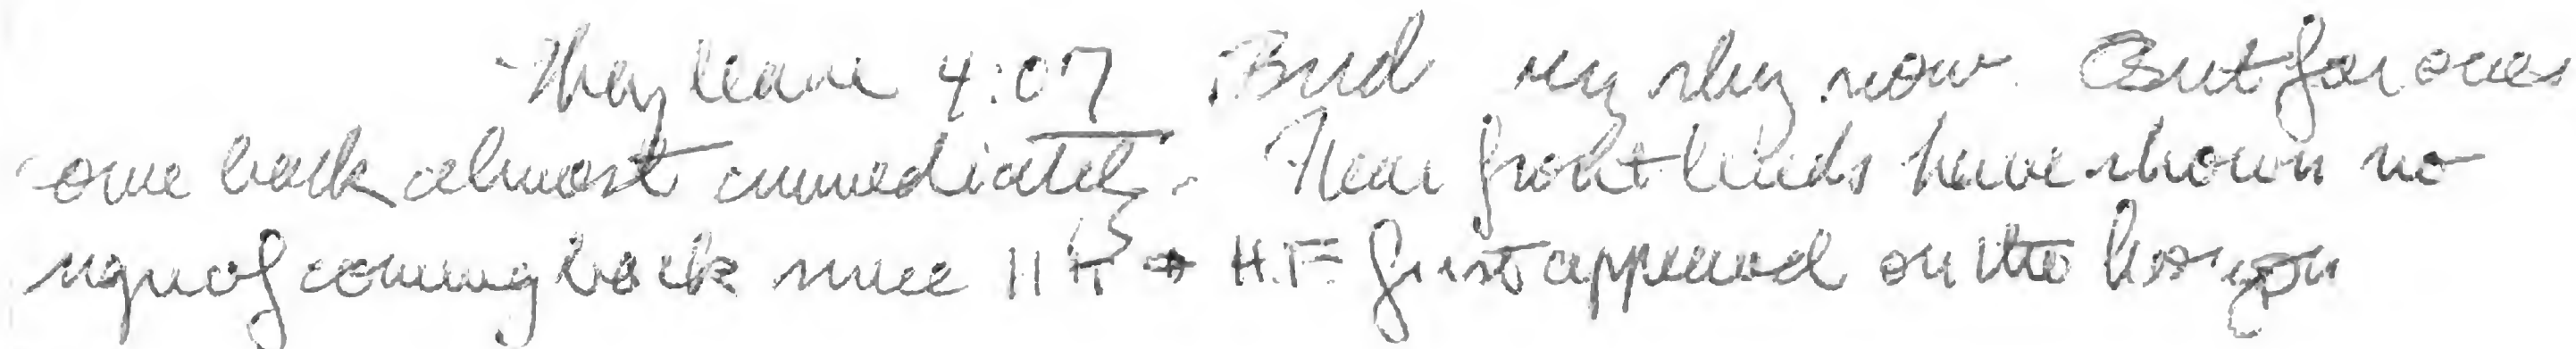 They leave 4:07 Bird very shy now. But far ones
come back almost immediately. Near front birds have shown no
sign of coming back since HH + H.F. first appeared on the horizon